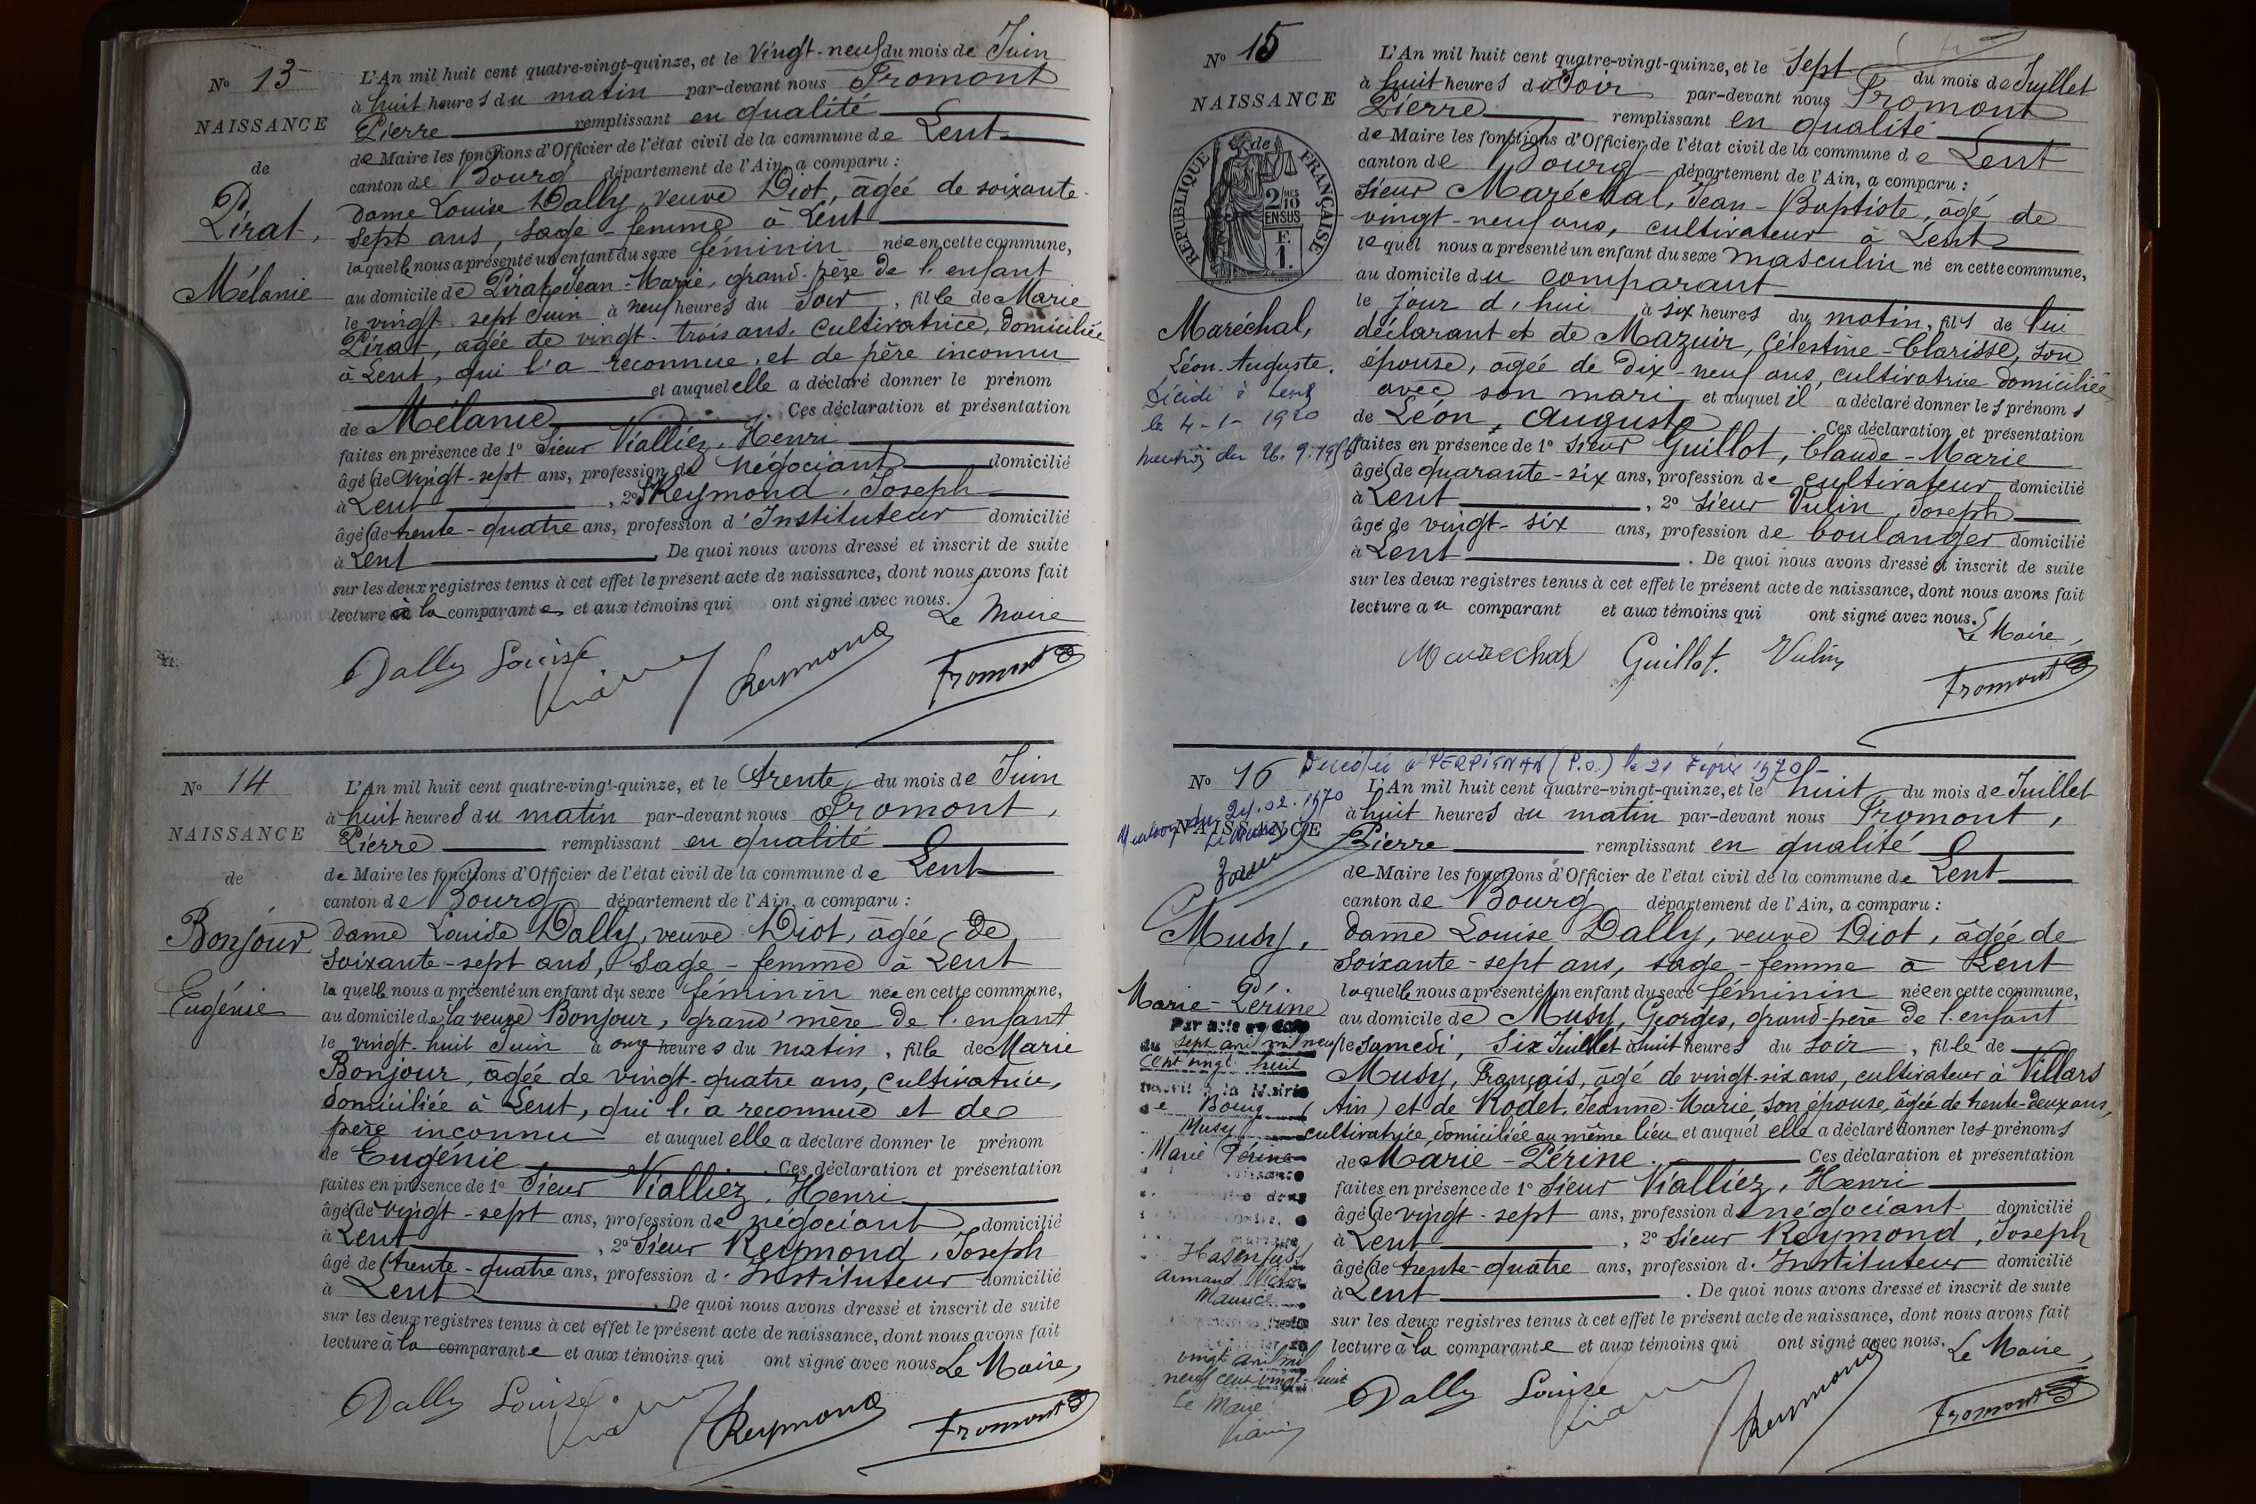 N° 13
NAISSANCE
de
Pirat,
Mélanie
L'An mil huit cent quatre-vingt-quinze, et le Vingt-neuf du mois de Juin
à huit heures du matin par-devant nous Fromont
Pierre remplissant en qualité
de Maire les fonctions d'Officier de l'état civil de la commune de Lent
canton de Bourg département de l'Ain, a comparu :
dame Louise Dally, veuve Diot, âgée de soixante-
sept ans, sage-femme à Lent
laquelle nous a présenté un enfant du sexe féminin née en cette commune,
au domicile de Pirat Jean-Marie, grand-père de l'enfant
le vingt-sept Juin à neuf heures du soir, fille de Marie
Pirat, âgée de vingt-trois ans, cultivatrice, domiciliée
à Lent, qui l'a reconnue, et de père inconnu
et auquel elle a déclaré donner le prénom
de Mélanie. Ces déclaration et présentation
faites en présence de 1° Sieur Vialliez, Henri
âgé de vingt-sept ans, profession de négociant domicilié
à Lent, 2° Reymond, Joseph
âgé de trente-quatre ans, profession d'Instituteur domicilié
à Lent. De quoi nous avons dressé et inscrit de suite
sur les deux registres tenus à cet effet le présent acte de naissance, dont nous avons fait
lecture à la comparante et aux témoins qui ont signé avec nous.
Le Maire
Dally Louise Reymond Fromont
N° 14
NAISSANCE
de
Bonjour
Eugénie
L'An mil huit cent quatre-vingt-quinze, et le trente du mois de Juin
à huit heures du matin par-devant nous Fromont,
Pierre remplissant en qualité
de Maire les fonctions d'Officier de l'état civil de la commune de Lent
canton de Bourg département de l'Ain, a comparu :
dame Louise Dally, veuve Diot, âgée de
soixante-sept ans, sage-femme à Lent
laquelle nous a présenté un enfant du sexe féminin née en cette commune,
au domicile de la veuve Bonjour, grand'mère de l'enfant
le vingt-huit Juin à onze heures du matin, fille de Marie
Bonjour, âgée de vingt-quatre ans, cultivatrice,
domiciliée à Lent, qui l'a reconnue et de
père inconnu et auquel elle a déclaré donner le prénom
de Eugénie. Ces déclaration et présentation
faites en présence de 1° Sieur Vialliez, Henri
âgé de vingt-sept ans, profession de négociant domicilié
à Lent, 2° Sieur Reymond, Joseph
âgé de trente-quatre ans, profession d'Instituteur domicilié
à Lent. De quoi nous avons dressé et inscrit de suite
sur les deux registres tenus à cet effet le présent acte de naissance, dont nous avons fait
lecture à la comparante et aux témoins qui ont signé avec nous. Le Maire,
Dally Louise Reymond Fromont
N° 15
NAISSANCE
de
RÉPUBLIQUE FRANÇAISE
2/10
EN SUS
F.
1.
Maréchal,
Léon-Auguste.
Décédé à Lent
le 4-1-1920
L'An mil huit cent quatre-vingt-quinze, et le Sept du mois de Juillet
à huit heures du Soir par-devant nous Fromont
Pierre remplissant en qualité
de Maire les fonctions d'Officier de l'état civil de la commune de Lent
canton de Bourg département de l'Ain, a comparu :
sieur Maréchal, Jean-Baptiste, âgé de
vingt-neuf ans, cultivateur à Lent
lequel nous a présenté un enfant du sexe masculin né en cette commune,
au domicile du comparant
le jour d'hui à six heures du matin, fils de lui
déclarant et de Mazuir, Célestine-Clarisse, son
épouse, âgée de Dix-neuf ans, cultivatrice domiciliée
avec son mari et auquel il a déclaré donner les prénoms
de Léon, Auguste. Ces déclaration et présentation
faites en présence de 1° sieur Guillot, Claude-Marie
âgé de quarante-six ans, profession de cultivateur domicilié
à Lent, 2° sieur Vulin, Joseph
âgé de vingt-six ans, profession de boulanger domicilié
à Lent. De quoi nous avons dressé et inscrit de suite
sur les deux registres tenus à cet effet le présent acte de naissance, dont nous avons fait
lecture au comparant et aux témoins qui ont signé avec nous.
Le Maire,
Marechal Guillot. Vulin Fromont
Décédée à PERPIGNAN (P.O.) le 21 Février 1970
N° 16
24.02.1970
NAISSANCE
Musy,
Marie-Périne
Par acte en date
du sept avril mil neuf
cent vingt huit
inscrit à la Mairie
de Bourg
Musy
Marie Périne
Hasenfust
Armand Victor
Maurice
vingt avril mil
neuf cent vingt-huit
Le Maire
L'An mil huit cent quatre-vingt-quinze, et le huit du mois de Juillet
à huit heures du matin par-devant nous Fromont,
Pierre remplissant en qualité
de Maire les fonctions d'Officier de l'état civil de la commune de Lent
canton de Bourg département de l'Ain, a comparu :
dame Louise Dally, veuve Diot, âgée de
soixante-sept ans, sage-femme à Lent
laquelle nous a présenté un enfant du sexe féminin née en cette commune,
au domicile de Musy, Georges, grand-père de l'enfant
le samedi, six Juillet à huit heures du soir, fille de
Musy, Français, âgé de vingt-six ans, cultivateur à Villars
(Ain) et de Rodet, Jeanne-Marie, son épouse, âgée de trente-deux ans,
cultivatrice, domiciliée au même lieu et auquel elle a déclaré donner les prénoms
de Marie-Périne. Ces déclaration et présentation
faites en présence de 1° sieur Vialliez, Henri
âgé de vingt-sept ans, profession de négociant domicilié
à Lent, 2° sieur Reymond, Joseph
âgé de trente-quatre ans, profession d'Instituteur domicilié
à Lent. De quoi nous avons dressé et inscrit de suite
sur les deux registres tenus à cet effet le présent acte de naissance, dont nous avons fait
lecture à la comparante et aux témoins qui ont signé avec nous. Le Maire,
Dally Louise Reymond Fromont